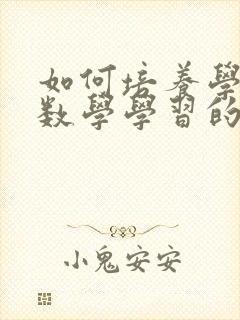 如何培养學
数學學習的
小鬼安安